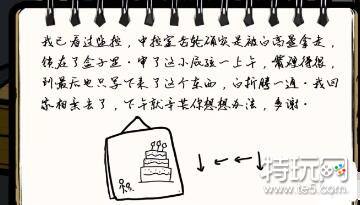 我已看过监控，中控室齿轮确实是被白高墨拿走，
锁在了盒子里。审了这小屁孩一上午，嘴硬得很，
到最后也只写下来了这个东西，白折腾一通。我回
家相亲去了，下午就辛苦你想想办法，多谢。
↓←←↓
特玩网
www.te5.com